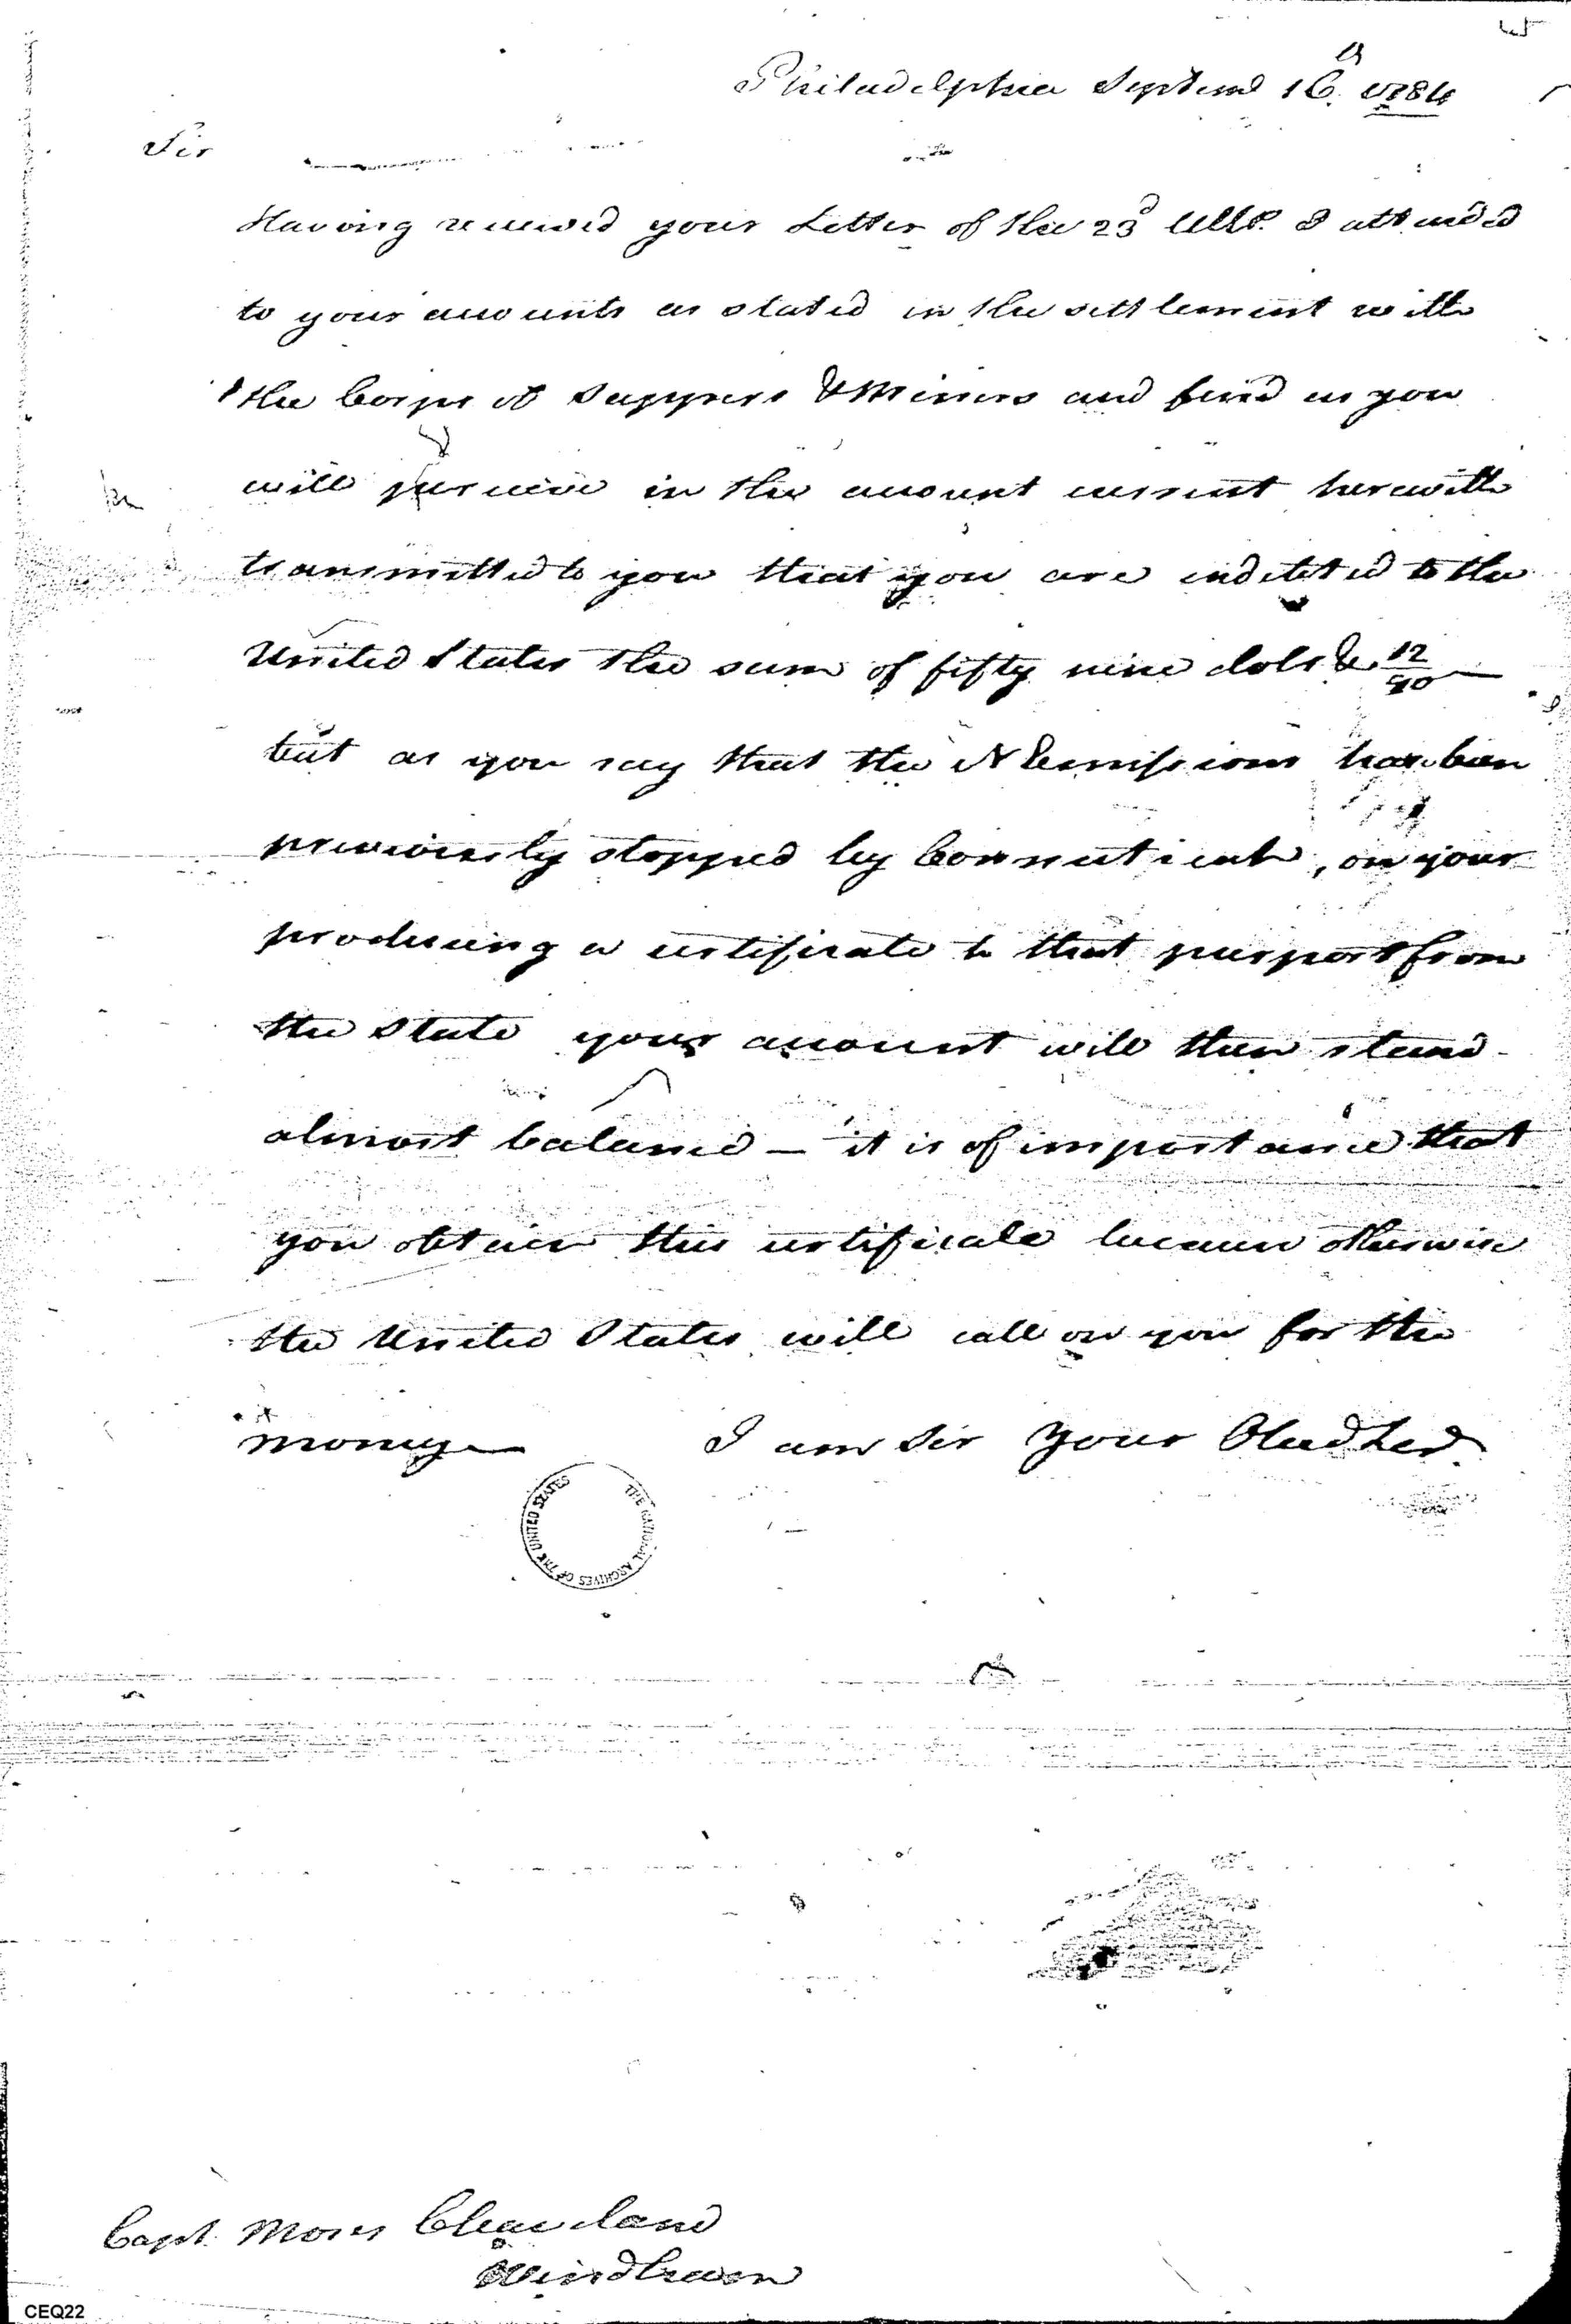 Philadelphia Septemr 16th 1784
Sir
Having received your Letter of the 23d Ulto. I attended
to your accounts as stated in the settlement with
the Corps of Sappers & Miners and find as you
will perceive in the account current herewith
transmitted to you that you are indebted to the
United States the sum of fifty nine dols & 12/90 —
but as you say that the N Emissions has been
previously stopped by Connecticut, on your
producing a certificate to that purport from
the State your account will then stand
almost balanced — it is of importance that
you obtain this certificate because otherwise
the United States will call on you for the
money — I am Sir Your Obed Ser
THE NATIONAL ARCHIVES OF THE UNITED STATES
Capt. Moses Cleaveland
Windham
CEQ22